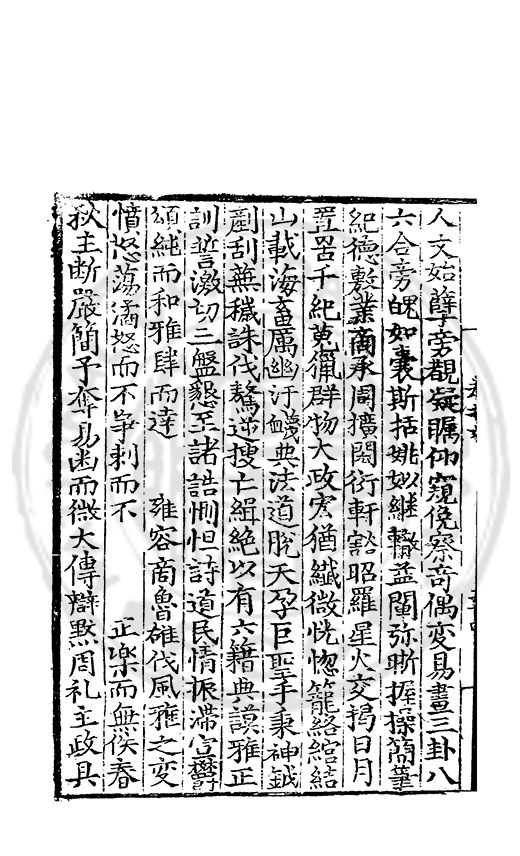 人文始孽旁觀凝矚仰窺俛察奇偶變易畫三卦八
六合旁魄如囊斯括姚姒継轡益闡弥晣握操簡筆
紀德敷業商承周擴閎衍軒豁昭羅星火交揭日月
罝罟千紀蒐獵群物大政宏猶纎微恍惚籠絡綰結
山載海畜厲幽汙衊典法道脫天孕巨聖手秉神鉞
劘刮蕪穢誅伐驁逆搜亡緝絶以有六籍典謨雅正
訓誓激切三盤懇至諸誥惻怛詩道民情振滯宣欝
頌純而和雅肆而達 雍容商魯雄伐風雅之變
憤怒蕩潏怒而不争刺而不 正樂而無俟春
秋主断嚴簡予奪易幽而微大傳辯黙周礼主政具